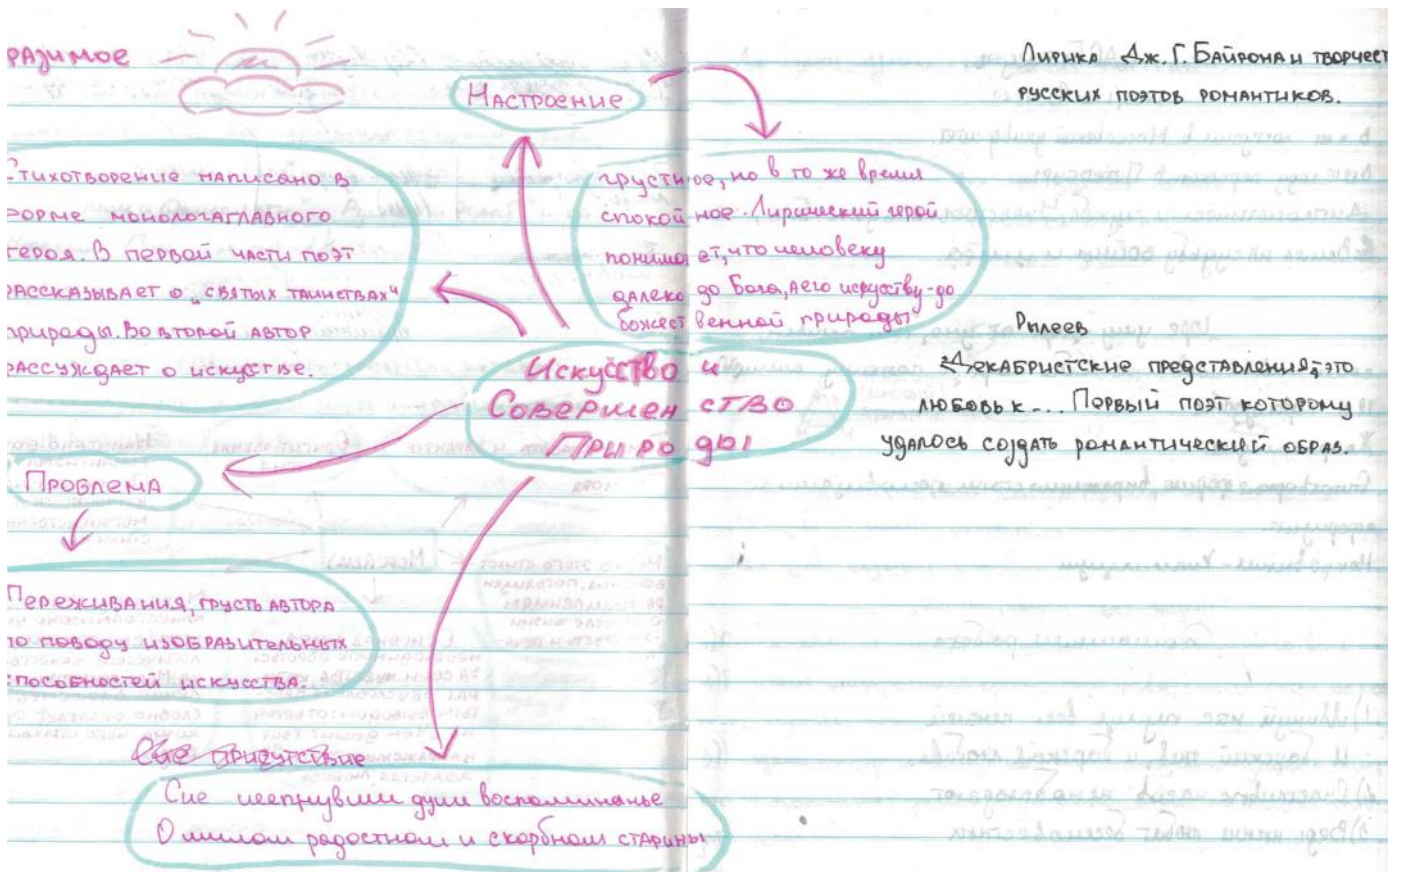 РАЗИМОЕ
НАСТРОЕНИЕ
СТИХОТВОРЕНИЕ НАПИСАНО В
ФОРМЕ МОНОЛОГАГЛАВНОГО
ГЕРОЯ. В ПЕРВОЙ ЧАСТИ ПОЭТ
РАССКАЗЫВАЕТ О „СВЯТЫХ ТАИНСТВАХ“
природы. Во второй АВТОР
РАССУЖДАЕТ О искусстве.
грустное, но в то же время
спокойное. Лирический герой
понимает, что человеку
далеко до Бога, а его искусству-до
божественной природы
Искусство и
Совершенство
Природы
ПРОБЛЕМА
ПЕРЕЖИВАНИЯ, ГРУСТЬ АВТОРА
по поводу ИЗОБРАЗИТЕЛЬНЫХ
способностей искусства.
присутствие
Сие души воспоминанье
О милом радостном и скорбном СТАРИНЫ
Лирика Дж. Г. Байрона и творчест
русских поэтов романтиков.
Рылеев
Декабристские представления, это
любовь к... Первый поэт которому
удалось создать романтический образ.